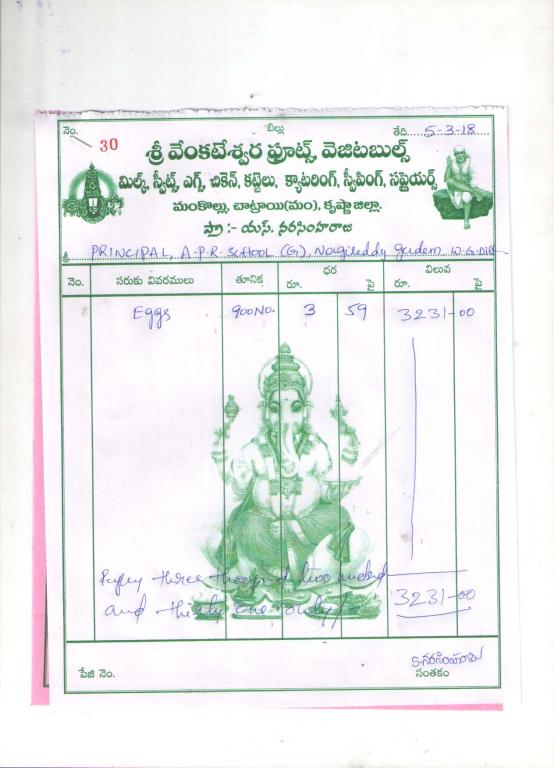 నెం. 30 బిల్లు తేది. 5-3-18
శ్రీ వేంకటేశ్వర ఫ్రూట్స్, వెజిటబుల్స్
మిల్క్, స్వీట్స్, ఎగ్స్, చికెన్, కట్టెలు, క్యాటరింగ్, స్వీపింగ్, సప్లైయర్స్
మంకొల్లు, చాట్రాయి(మం), కృష్ణా జిల్లా.
ప్రొ :- యస్. నరసింహరాజు
శ్రీ PRINCIPAL, A.P.R. SCHOOL (G), Nagireddy gudem, W.G.Dist
నెం. సరుకు వివరములు తూనిక ధర విలువ
రూ. పై రూ. పై
Eggs 900No. 3 59 3231-00
Rupey three thousand two hundred
and thirty one only/- 3231-00
S. నరసింహరాజు
పేజి నెం. సంతకం